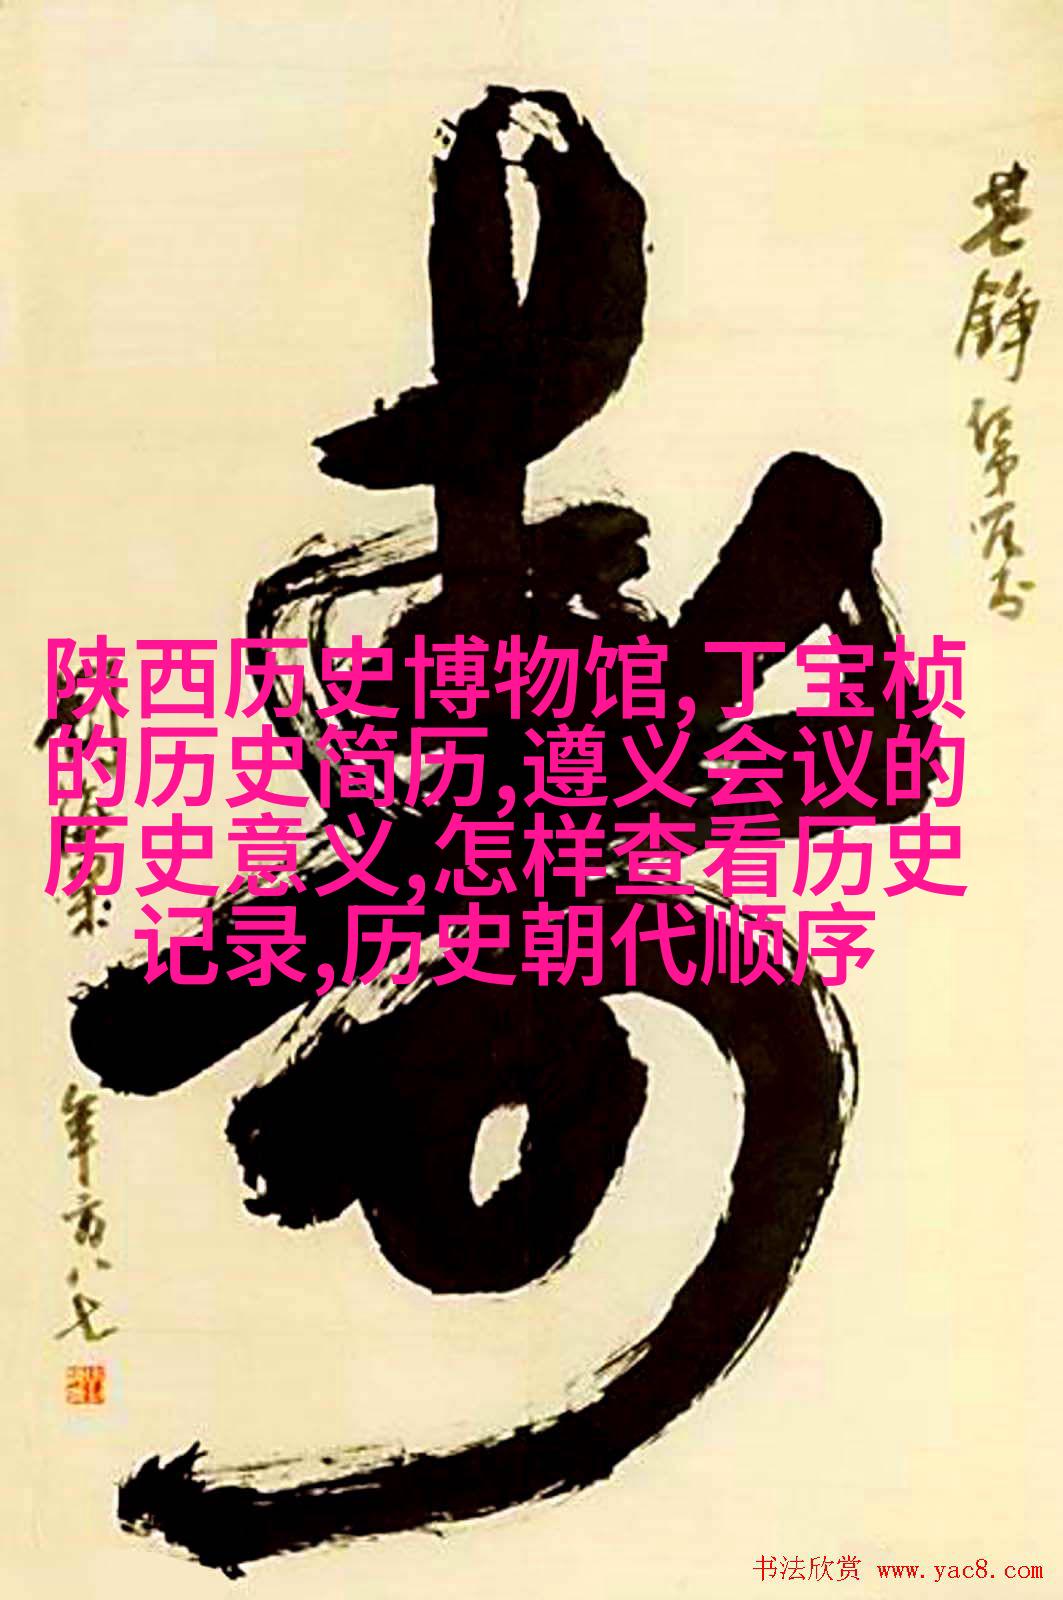 寿
其錚
年方八七
陕西历史博物馆,丁宝桢
的历史简历,遵义会议的
历史意义,怎样查看历史
记录,历史朝代顺序
书法欣赏 www.yac8.com